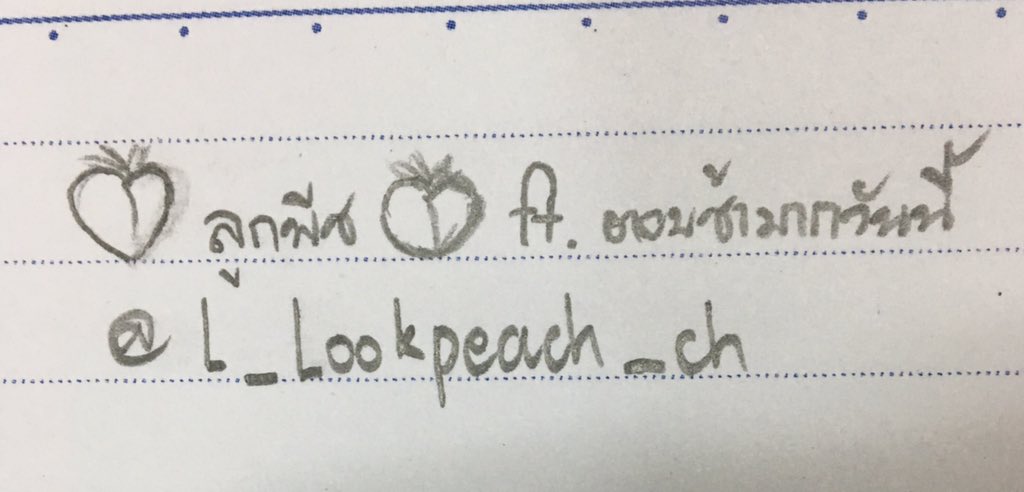 ลูกพีช ft. ตอบช้ามากวันนี้
@L_Lookpeach_ch